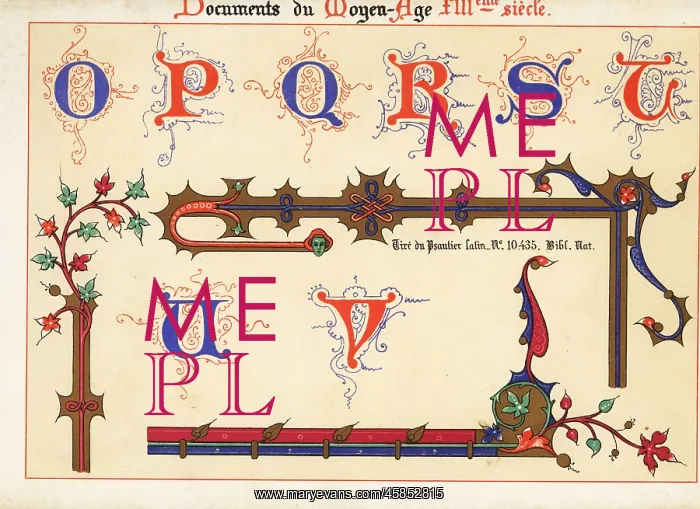 Documents du Moyen-Age XIII eme siècle.
O P Q R S T
Tiré du Psautier latin. No. 10435. Bibl. Nat.
U V
ME
PL
ME
PL
www.maryevans.com/45852815